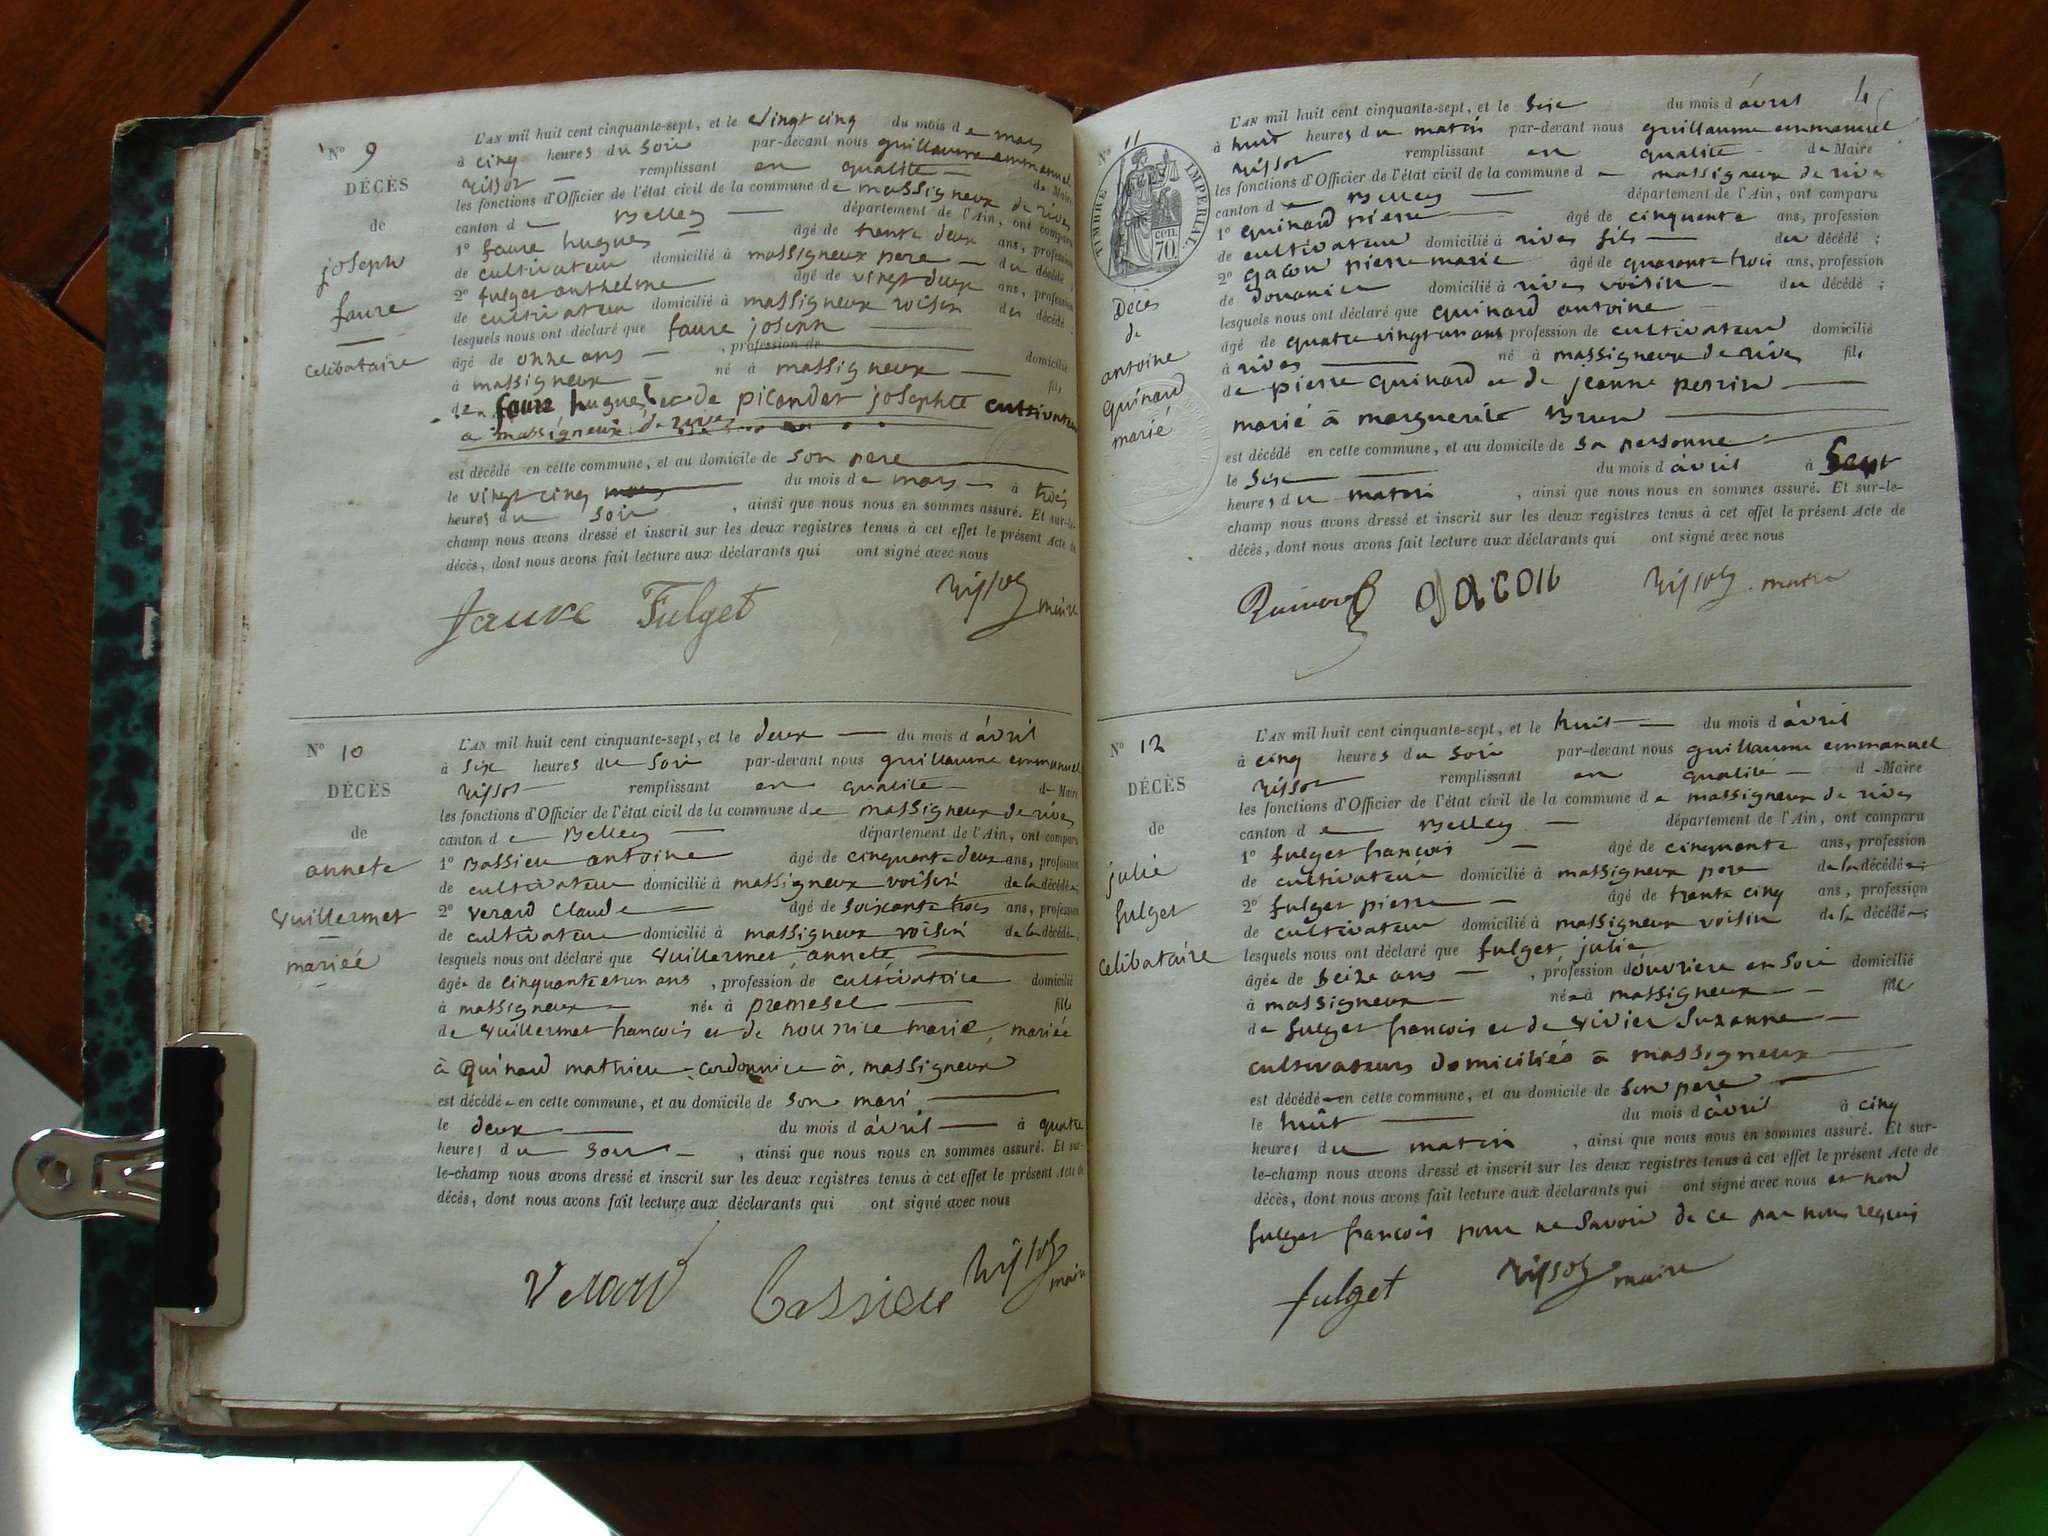 N° 9
DÉCÈS
de
joseph
faure
celibataire
L'AN mil huit cent cinquante-sept, et le vingt cinq du mois de mars
à cinq heures du soir par-devant nous guillaume emmanuel
remplissant en qualité de Maire
les fonctions d'Officier de l'état civil de la commune de massigneux de rives
canton de Belley département de l'Ain, ont comparu
1° faure hugues âgé de trente deux ans, profession
de cultivateur domicilié à massigneux pere du décédé ;
2° fulget anthelme âgé de vingt deux ans, profession
de cultivateur domicilié à massigneux voisin du décédé ;
lesquels nous ont déclaré que faure joseph
âgé de onze ans , profession de domicilié
à massigneux né à massigneux fils
de faure hugues et de josephte cultivateurs
a massigneux de rives
est décédé en cette commune, et au domicile de son pere
le vingt cinq mars du mois de mars à trois
heures du soir , ainsi que nous nous en sommes assuré. Et sur-le-
champ nous avons dressé et inscrit sur les deux registres tenus à cet effet le présent Acte de
décès, dont nous avons fait lecture aux déclarants qui ont signé avec nous
faure Fulget maire
N° 10
DÉCÈS
de
annete
vuillermet
mariée
L'AN mil huit cent cinquante-sept, et le deux du mois d'avril
à six heures du soir par-devant nous guillaume emmanuel
remplissant en qualité de Maire
les fonctions d'Officier de l'état civil de la commune de massigneux de rives
canton de Belley département de l'Ain, ont comparu
1° Bassieu antoine âgé de cinquante deux ans, profession
de cultivateur domicilié à massigneux voisin de la décédée ;
2° verard claude âgé de soixante trois ans, profession
de cultivateur domicilié à massigneux voisin de la décédée ;
lesquels nous ont déclaré que vuillermet annete
âgée de cinquante et un ans , profession de cultivatrice domicilié
à massigneux née à premesel fille
de vuillermet francois et de nourrice marie, mariée
à quinard mathieu cordonnier à massigneux
est décédée en cette commune, et au domicile de son mari
le deux du mois d'avril à quatre
heures du soir , ainsi que nous nous en sommes assuré. Et sur-
le-champ nous avons dressé et inscrit sur les deux registres tenus à cet effet le présent Acte de
décès, dont nous avons fait lecture aux déclarants qui ont signé avec nous
Verard bassieu maire
4
N° 11
TIMBRE IMPERIAL
70 cen.
Décès
de
antoine
quinard
marié
L'AN mil huit cent cinquante-sept, et le six du mois d'avril
à huit heures du matin par-devant nous guillaume emmanuel
remplissant en qualité de Maire
les fonctions d'Officier de l'état civil de la commune de massigneux de rives
canton de Belley département de l'Ain, ont comparu
1° quinard pierre âgé de cinquante ans, profession
de cultivateur domicilié à rives fils du décédé ;
2° gacon pierre marie âgé de quarante trois ans, profession
de douanier domicilié à rives voisin du décédé ;
lesquels nous ont déclaré que quinard antoine
âgé de quatre vingt un ans profession de cultivateur domicilié
à rives né à massigneux de rives fils
de pierre quinard et de jeanne perrin
marié à marguerite Brun
est décédé en cette commune, et au domicile de sa personne
le six du mois d'avril à sept
heures du matin , ainsi que nous nous en sommes assuré. Et sur-le-
champ nous avons dressé et inscrit sur les deux registres tenus à cet effet le présent Acte de
décès, dont nous avons fait lecture aux déclarants qui ont signé avec nous
gacon maire
N° 12
DÉCÈS
de
julie
fulget
celibataire
L'AN mil huit cent cinquante-sept, et le huit du mois d'avril
à cinq heures du soir par-devant nous guillaume emmanuel
remplissant en qualité de Maire
les fonctions d'Officier de l'état civil de la commune de massigneux de rives
canton de Belley département de l'Ain, ont comparu
1° fulget françois âgé de cinquante ans, profession
de cultivateur domicilié à massigneux pere de la décédée ;
2° fulget pierre âgé de trente cinq ans, profession
de cultivateur domicilié à massigneux voisin de la décédée ;
lesquels nous ont déclaré que fulget julie
âgée de seize ans , profession d'ouvriere en soie domicilié
à massigneux née à massigneux fille
de fulget francois et de vivier suzanne
cultivateurs domiciliés à massigneux
est décédée en cette commune, et au domicile de son pere
le huit du mois d'avril à cinq
heures du matin , ainsi que nous nous en sommes assuré. Et sur-
le-champ nous avons dressé et inscrit sur les deux registres tenus à cet effet le présent Acte de
décès, dont nous avons fait lecture aux déclarants qui ont signé avec nous et non
fulget francois pour ne savoir de ce par nous requis
fulget maire